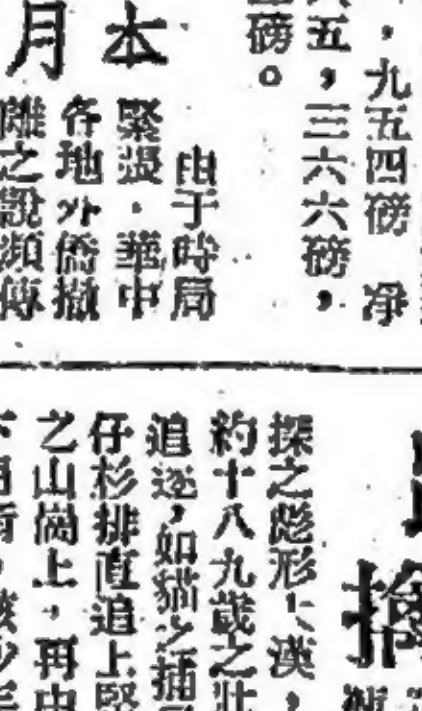 ，九五四磅　净
五，三六六磅，
磅。
本月
由于時局
緊張，華中
各地外僑撤
離之說頻傳
擒
探之彪形大漢，
約十八九歲之壮
追逐，如貓之捕
仔杉排直追上堅
之山崗上，再由